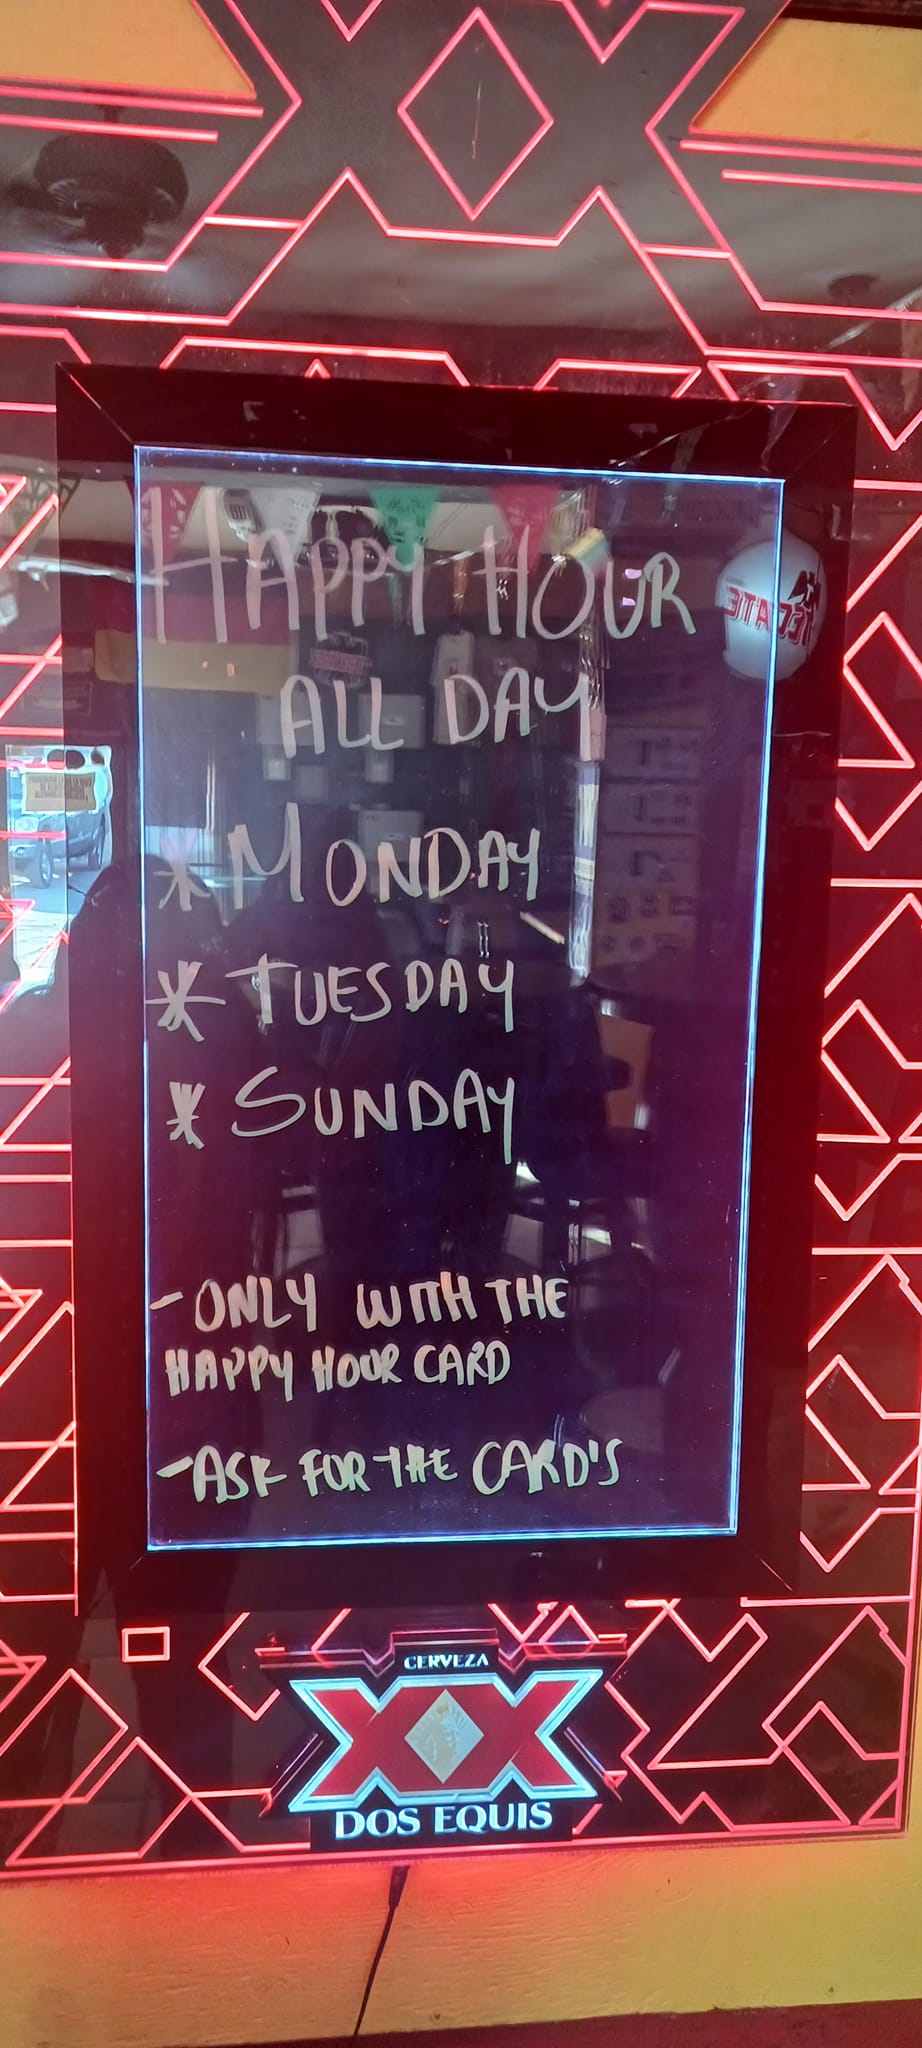 HAPPY HOUR
ALL DAY
* MONDAY
* TUESDAY
* SUNDAY
- ONLY WITH THE
HAPPY HOUR CARD
- ASK FOR THE CARD'S
CERVEZA
XX
DOS EQUIS